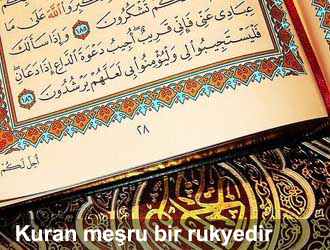 كَبِّرُوا۟ ٱللَّهَ عَلَىٰ
تَشْكُرُونَ ١٨٥ وَإِذَا سَأَلَكَ
عِبَادِى عَنِّى فَإِنِّى قَرِيبٌ أُجِيبُ دَعْوَةَ ٱلدَّاعِ إِذَا دَعَانِ
فَلْيَسْتَجِيبُوا۟ لِى وَلْيُؤْمِنُوا۟ بِى لَعَلَّهُمْ يَرْشُدُونَ ١٨٦
٢٨
أُحِلَّ لَكُمْ
Kuran meşru bir rukyedir